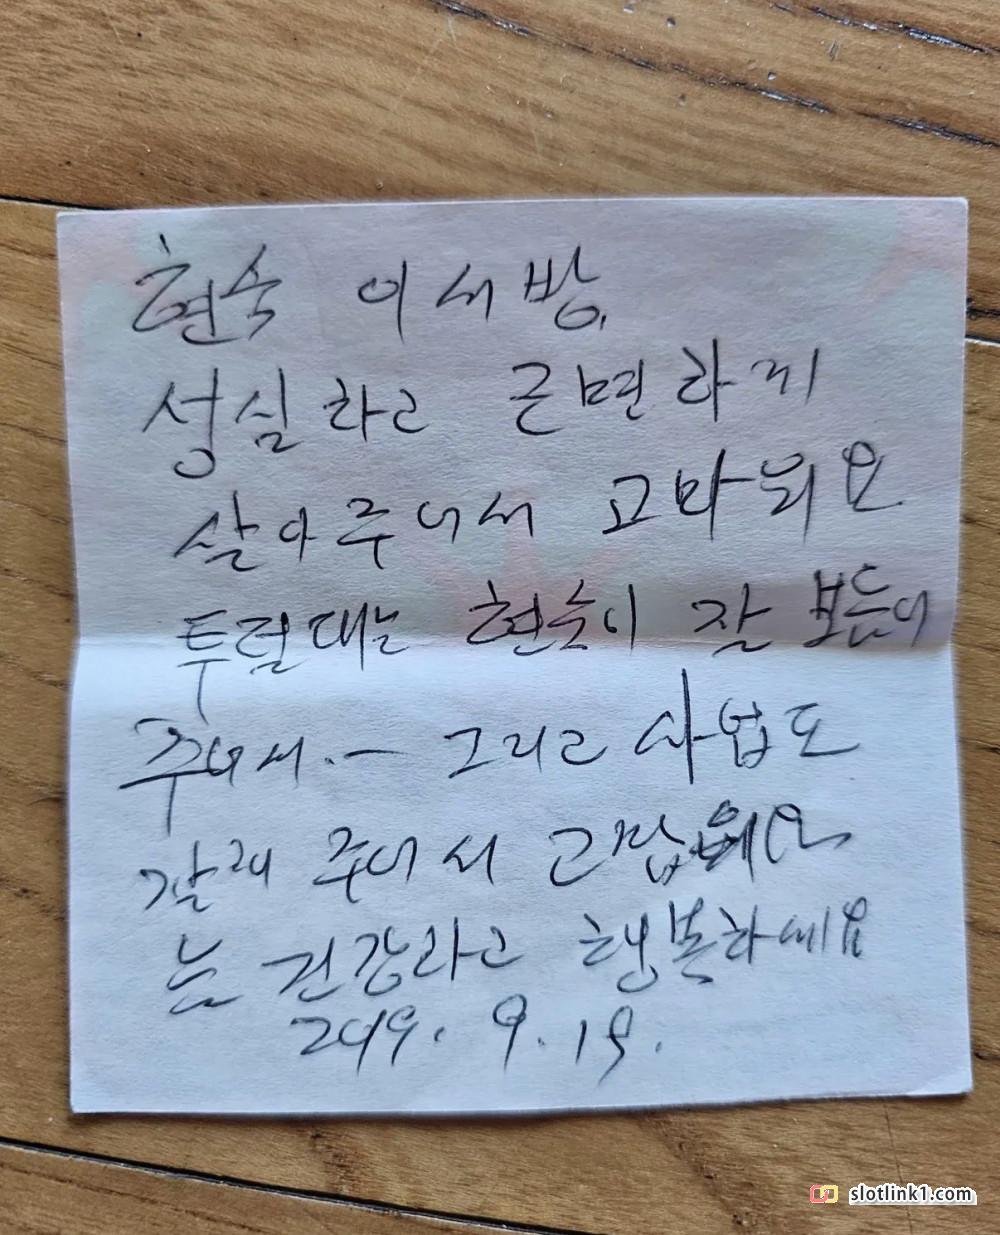 현숙 이서방.
성실하고 근면하게
살아주어서 고마워요
투덜대는 현숙이 잘 보듬어
주어서.— 그리고 사업도
잘해 주어서 고맙워요
늘 건강하고 행복하세요
2019. 9. 19.
slotlink1.com